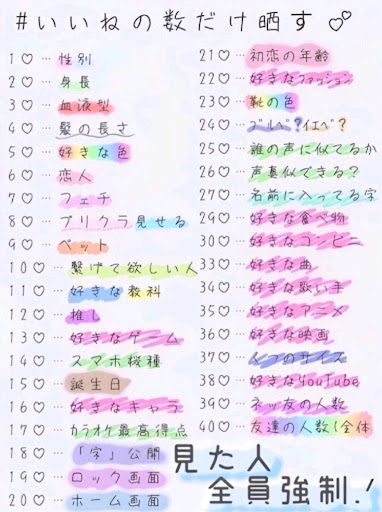 #いいねの数だけ晒す♡
1♡…性別
2♡…身長
3♡…血液型
4♡…髪の長さ
5♡…好きな色
6♡…恋人
7♡…フェチ
8♡…プリクラ見せる
9♡…ペット
10♡…繋げて欲しい人
11♡…好きな教科
12♡…推し
13♡…好きなゲーム
14♡…スマホ機種
15♡…誕生日
16♡…好きなキャラ
17♡…カラオケ最高得点
18♡…「字」公開
19♡…ロック画面
20♡…ホーム画面
21♡…初恋の年齢
22♡…好きなファッション
23♡…靴の色
24♡…ブルベ?イエベ?
25♡…誰の声に似てるか
26♡…声真似できる?
27♡…名前に入ってる字
29♡…好きな食べ物
30♡…好きなコンビニ
33♡…好きな曲
34♡…好きな歌い手
35♡…好きなアニメ
36♡…好きな映画
37♡…のサイズ
38♡…好きなYouTube
39♡…ネッ友の人数
40♡…友達の人数(全体
見た人
全員強制.!